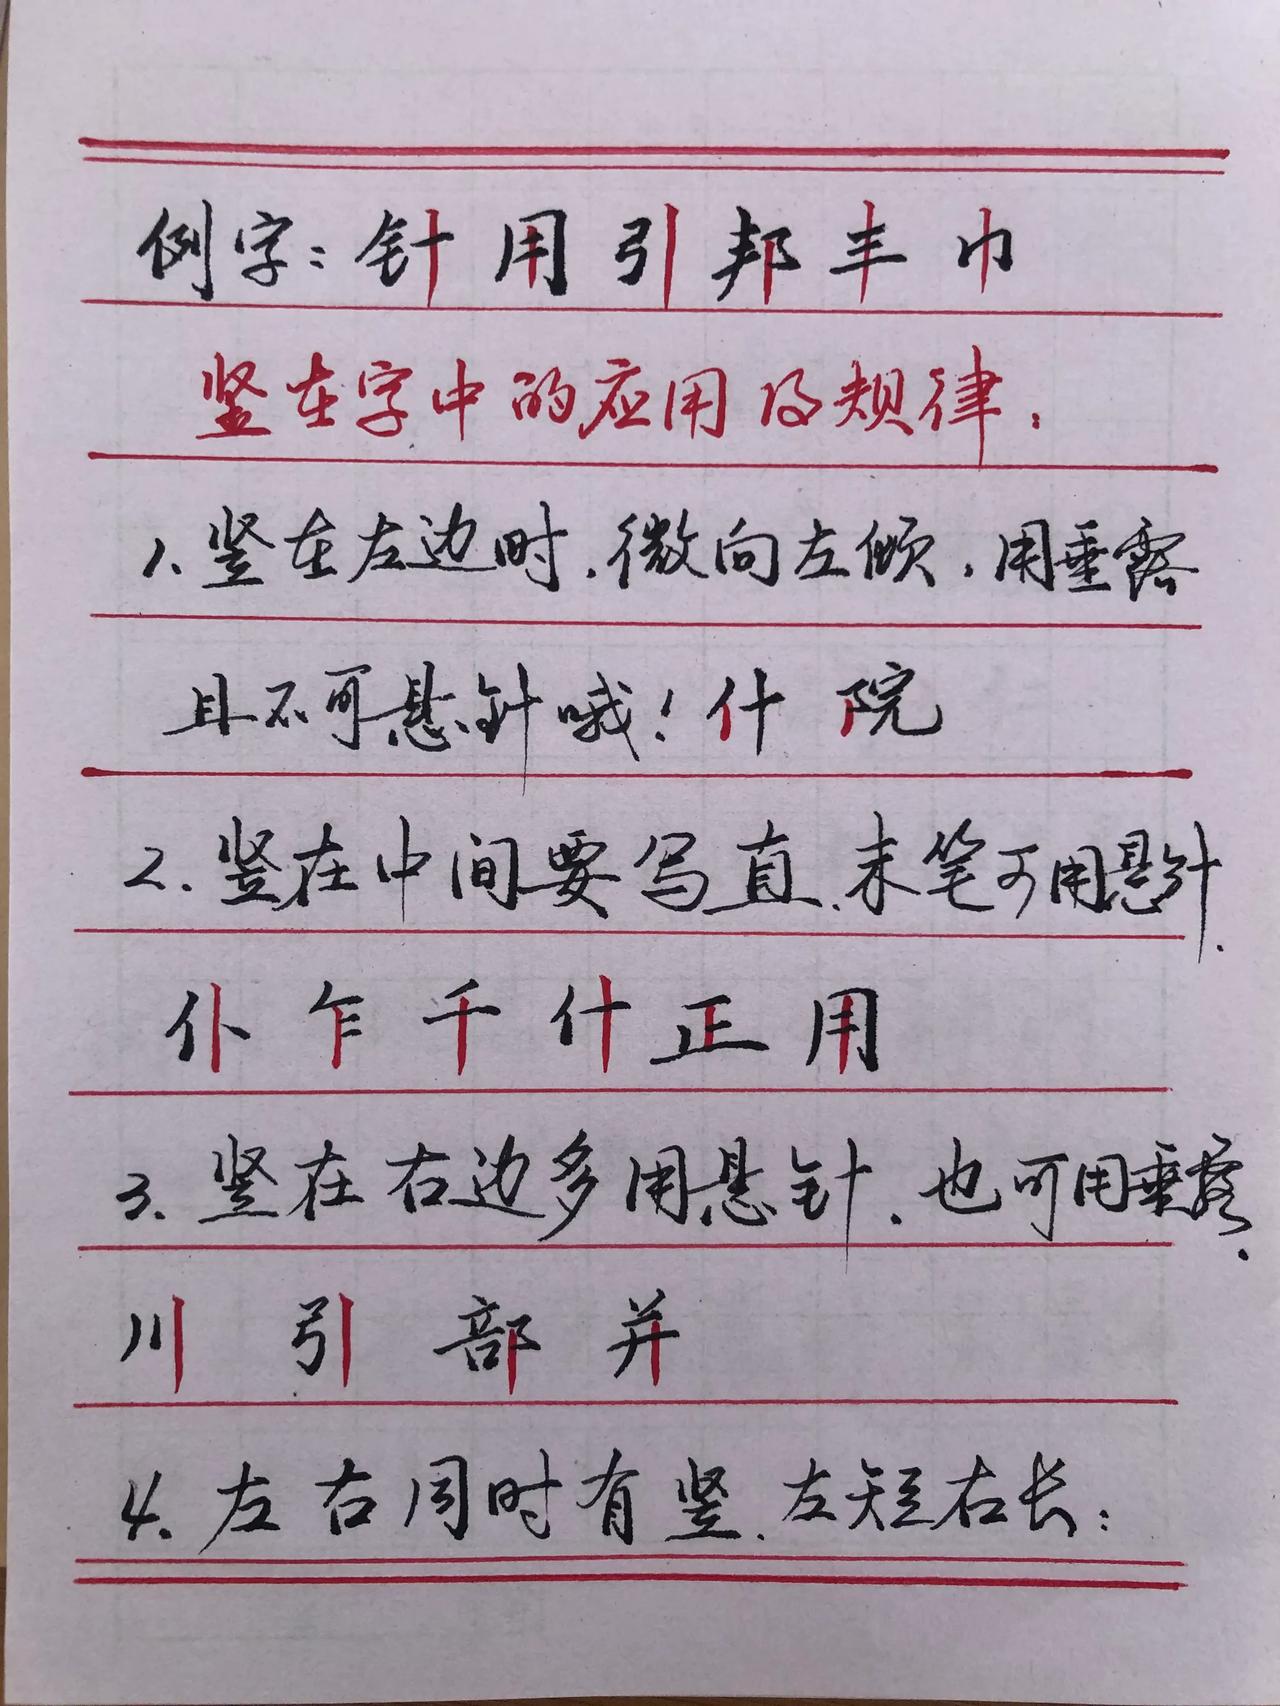 例字：针 用 引 邦 丰 巾
竖在字中的应用及规律：
1、竖在左边时，微向左倾，用垂露
且不可悬针哦！什 院
2、竖在中间要写直，末笔可用悬针.
仆 乍 千 什 正 用
3、竖在右边多用悬针，也可用垂露.
川 引 部 并
4、左右同时有竖，左短右长：